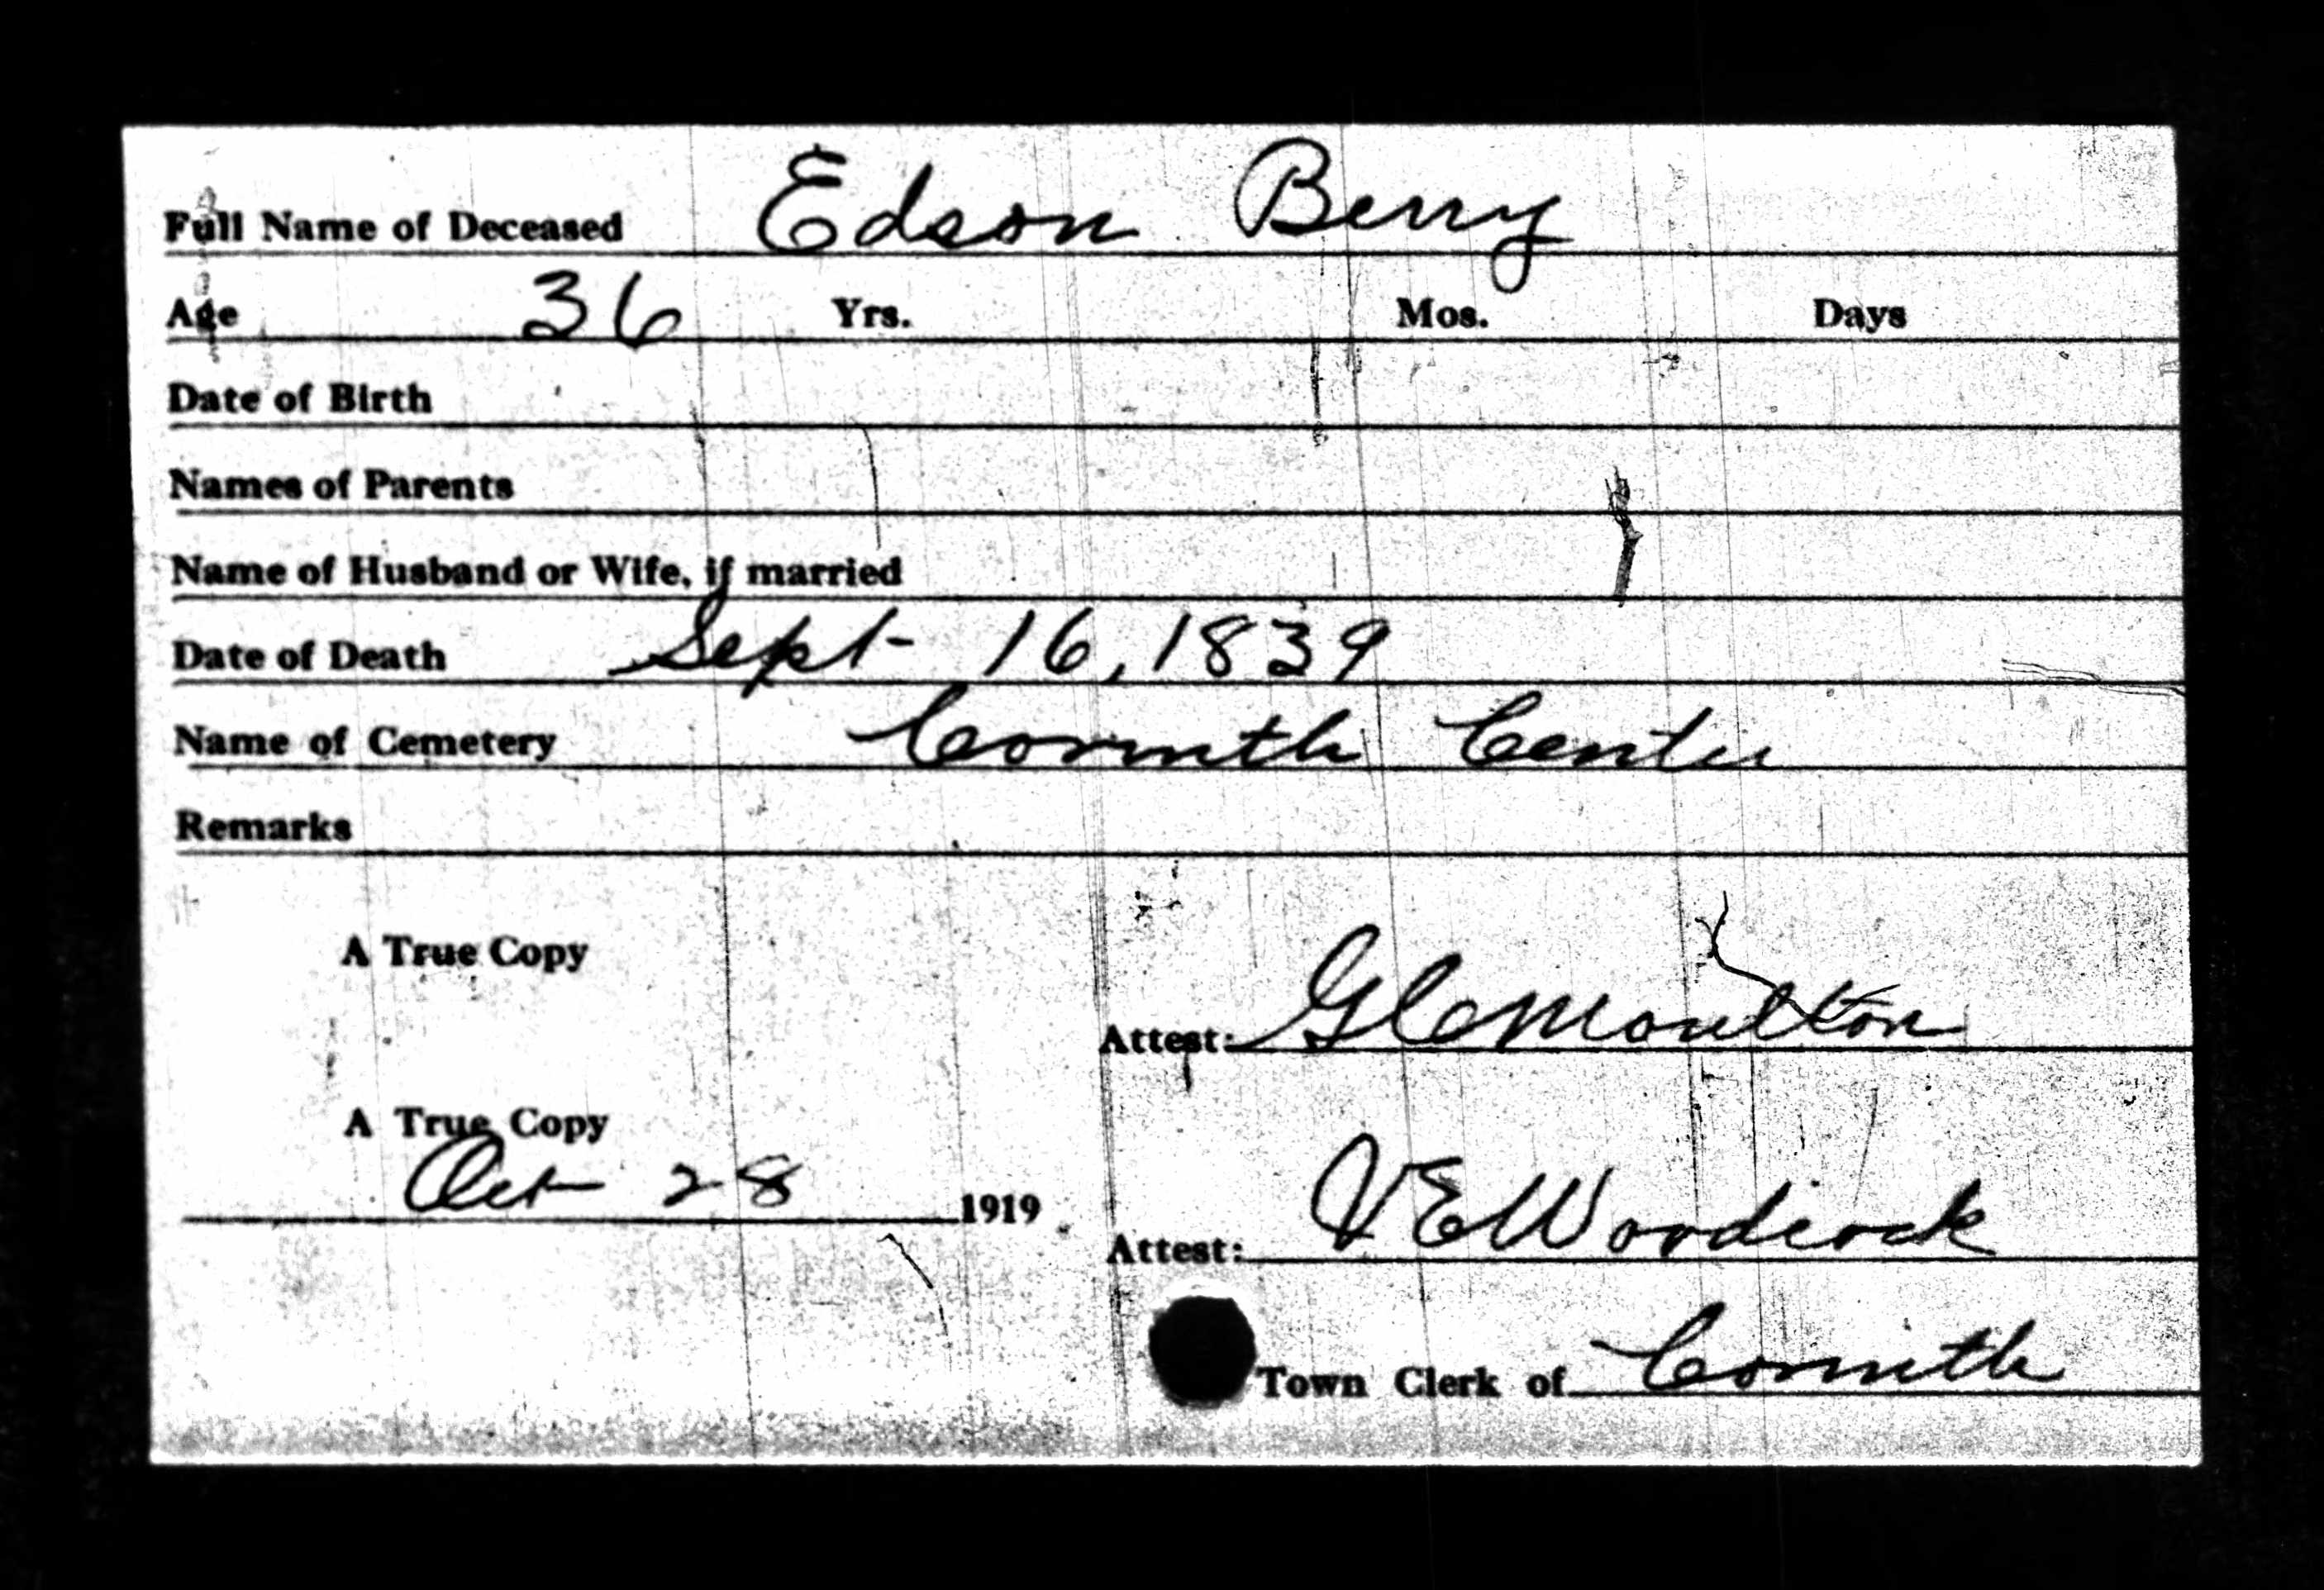 Full Name of Deceased Edson Berry
Age 36 Yrs. Mos. Days
Date of Birth
Names of Parents
Name of Husband or Wife, if married
Date of Death Sept 16, 1839
Name of Cemetery Corinth Center
Remarks
A True Copy
Attest: G l C Moulton
A True Copy
Oct 28 1919
Attest: V E Woodcock
Town Clerk of Corinth